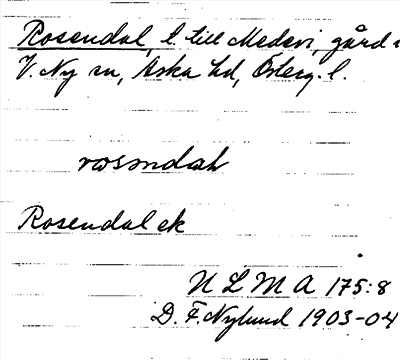 Rosendal, l. till Medevi, gård i
V. Ny sn, Aska hd, Österg. l.
rosəndal
Rosendal ek
N L M A 175:8
D. F. Nylund 1903-04